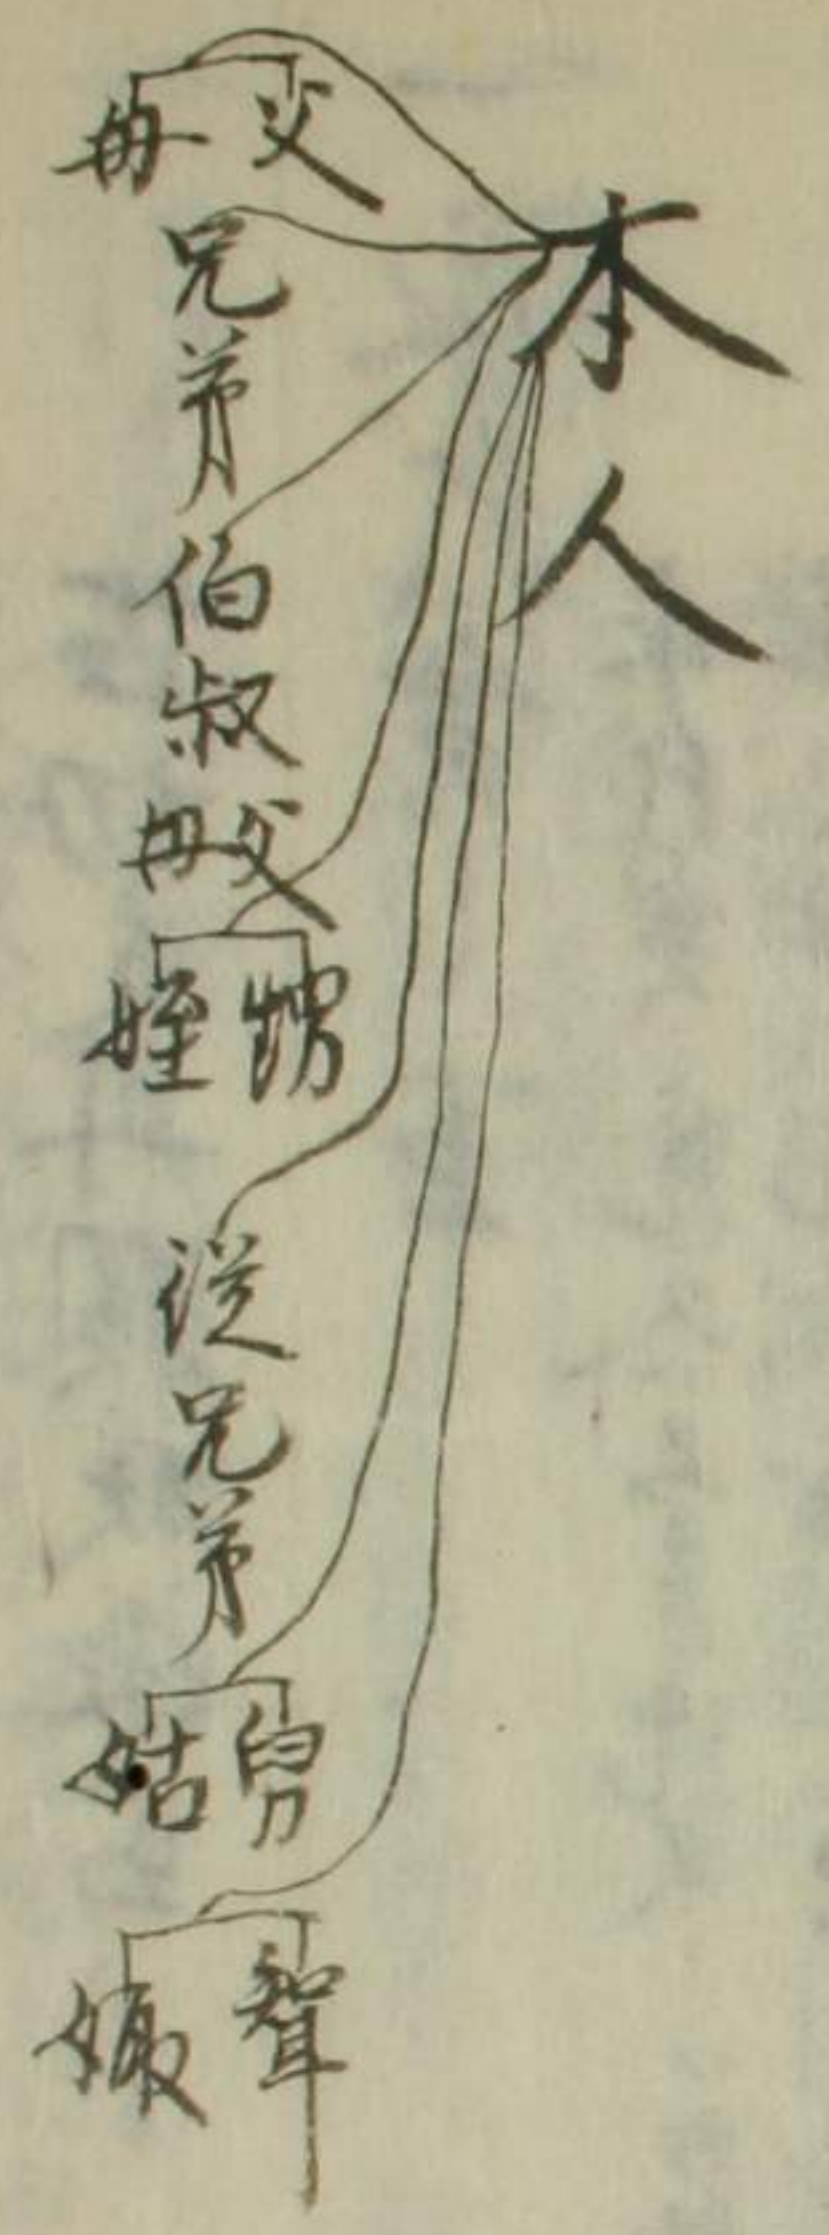 本人
父
母
兄弟
伯叔
父
母
甥
姪
従兄弟
舅
姑
聟
娵